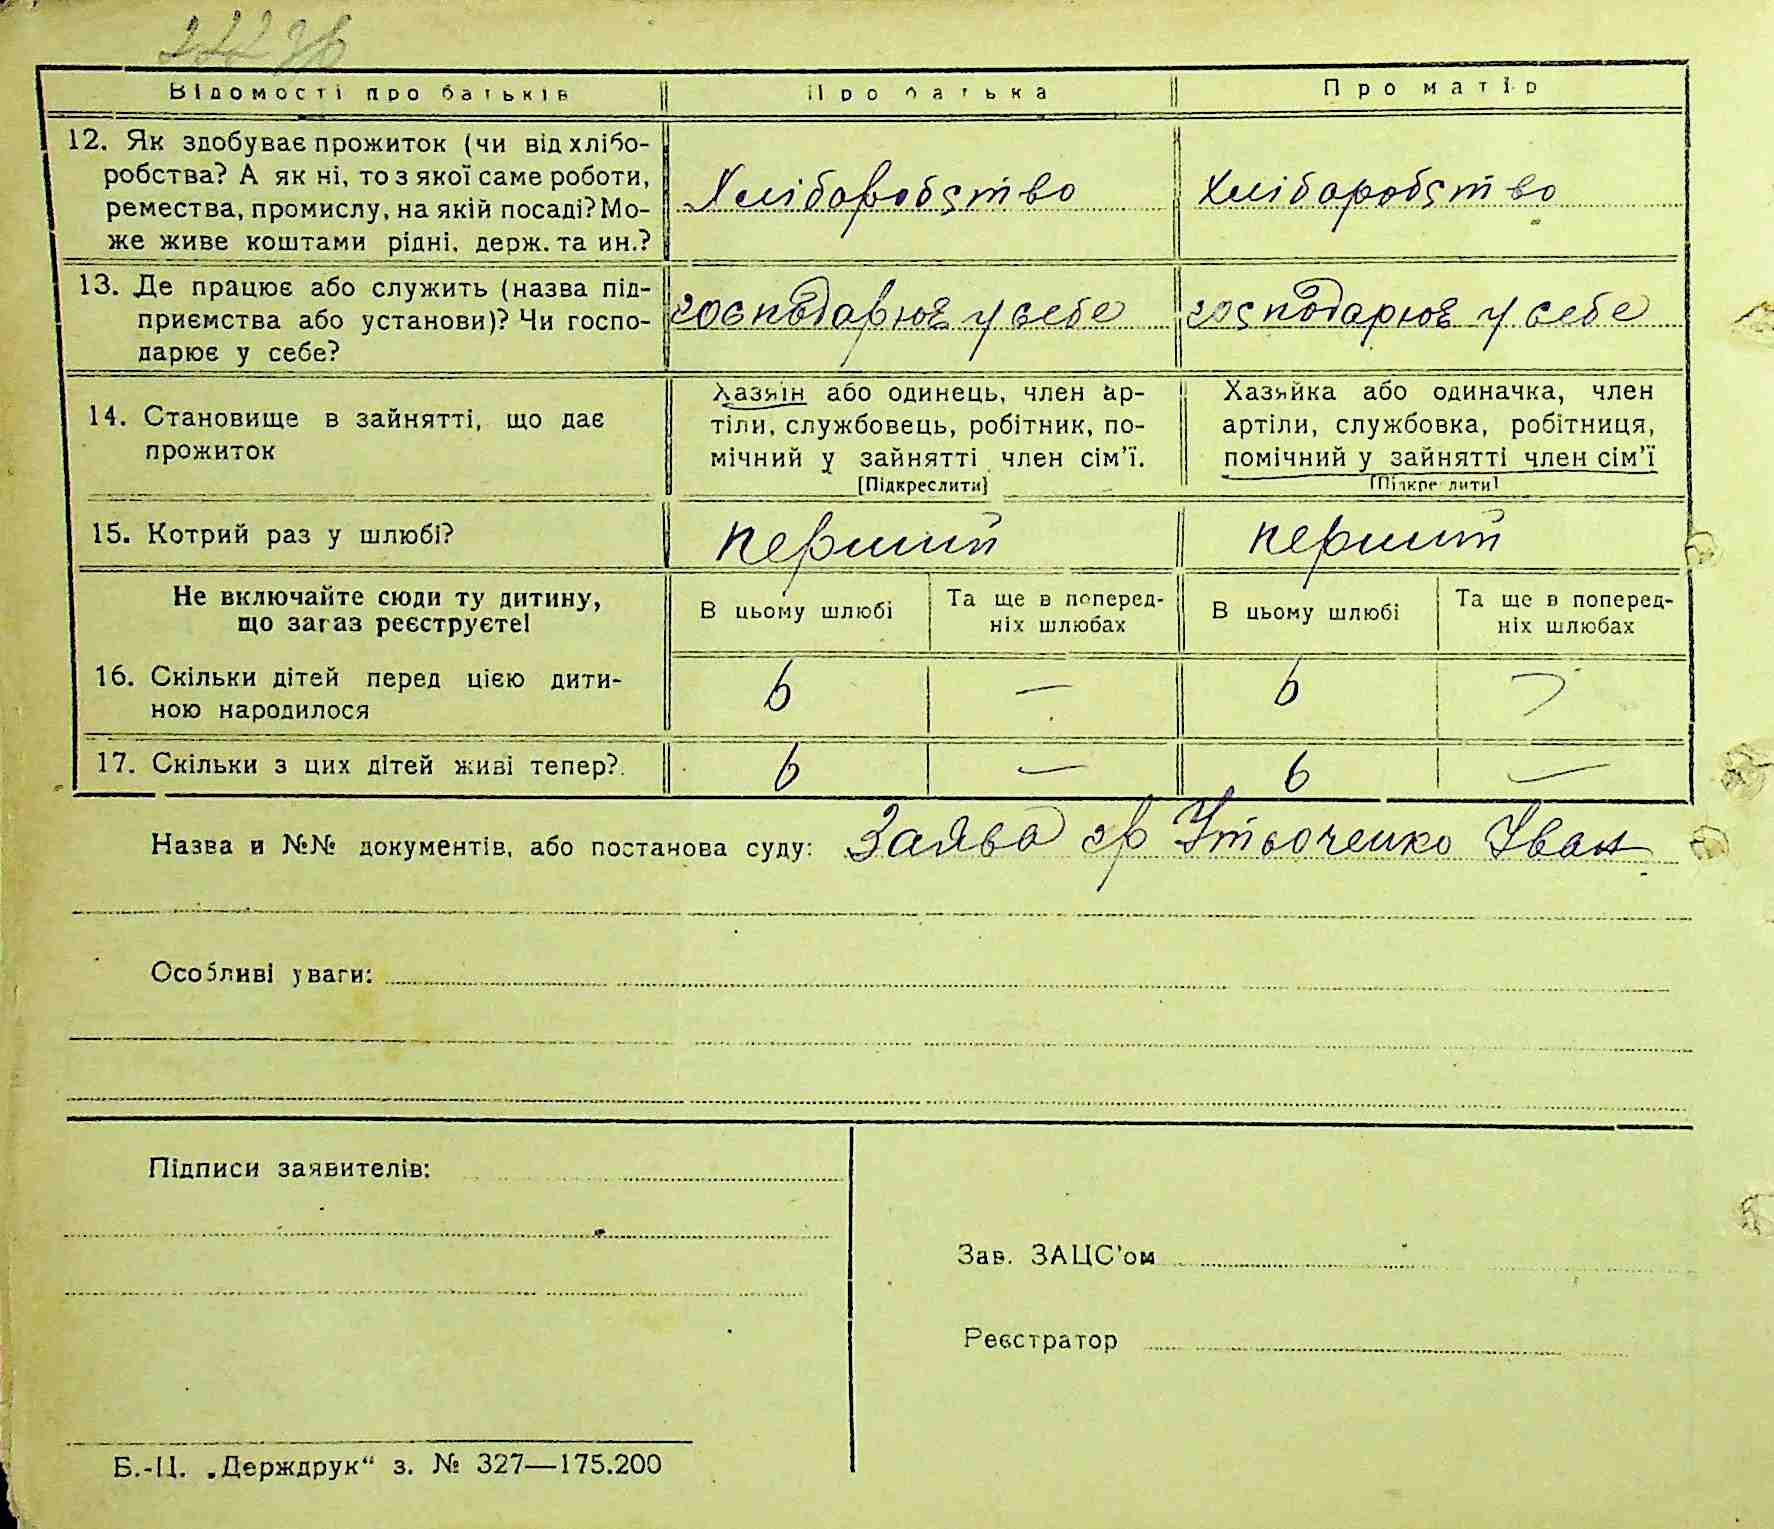 222 зв
Відомості про батьків Про батька Про матір
12. Як здобуває прожиток (чи від хлібо- робства? А як ні, то з якої саме роботи, ремества, промислу, на якій посаді? Мо- же живе коштами рідні, держ. та ин.?
Хлібаробство Хлібаробство
13. Де працює або служить (назва під- приємства або установи)? Чи госпо- дарює у себе?
господарює у себе господарює у себе
14. Становище в зайнятті, що дає прожиток
Хазяїн або одинець, член ар-
тіли, службовець, робітник, по-
мічний у зайнятті член сім'ї.
[Підкреслити]
Хазяйка або одиначка, член
артіли, службовка, робітниця,
помічний у зайнятті член сім'ї
[Підкреслити]
15. Котрий раз у шлюбі? перший перший
Не включайте сюди ту дитину,
що зараз реєструєте!
В цьому шлюбі Та ще в поперед- ніх шлюбах В цьому шлюбі Та ще в поперед- ніх шлюбах
16. Скільки дітей перед цією дити- ною народилося
6 — 6
17. Скільки з цих дітей живі тепер? 6 — 6 —
Назва и №№ документів, або постанова суду: Заява гр Іван
Особливі уваги:
Підписи заявителів:
Зав. ЗАЦС'ом
Реєстратор
Б.-Ц. „Держдрук“ з. № 327—175.200